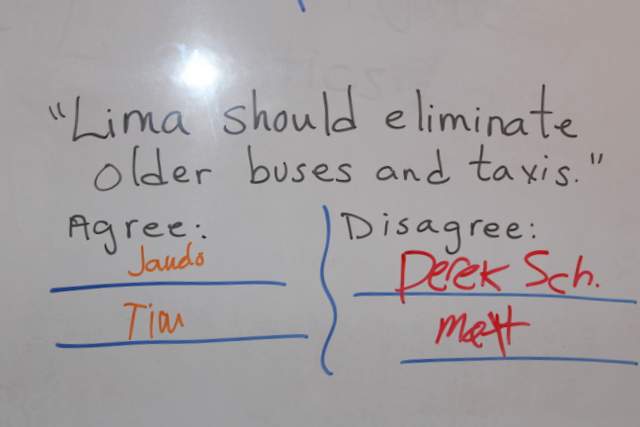 "Lima should eliminate
older buses and taxis."
Agree:
Disagree:
Derek Sch.
Tim
Matt